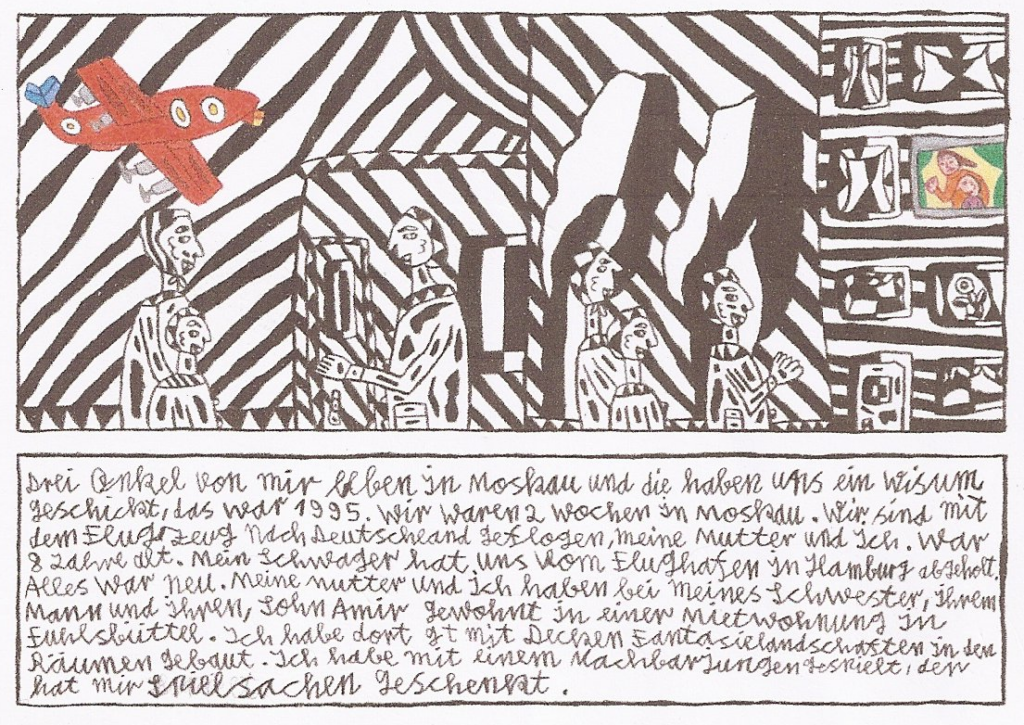 Drei Onkel von mir leben in Moskau und die haben uns ein Wisum
geschickt, das war 1995. Wir waren 2 Wochen in Moskau. Wir sind mit
dem Flugzeug nach Deutschland geflogen, meine Mutter und Ich. War
8 Jahre alt. Mein Schwager hat uns vom Flughafen in Hamburg abgeholt.
Alles war neu. Meine Mutter und ich haben bei meines Schwester, ihrem
Mann und ihren, Sohn Amir gewohnt in einer Mietwohnung in
Fuhlsbüttel. Ich habe dort mit Decken Fantasielandschaften in den
Räumen gebaut. Ich habe mit einem Nachbarjungen gespielt, der
hat mir Spielsachen geschenkt.